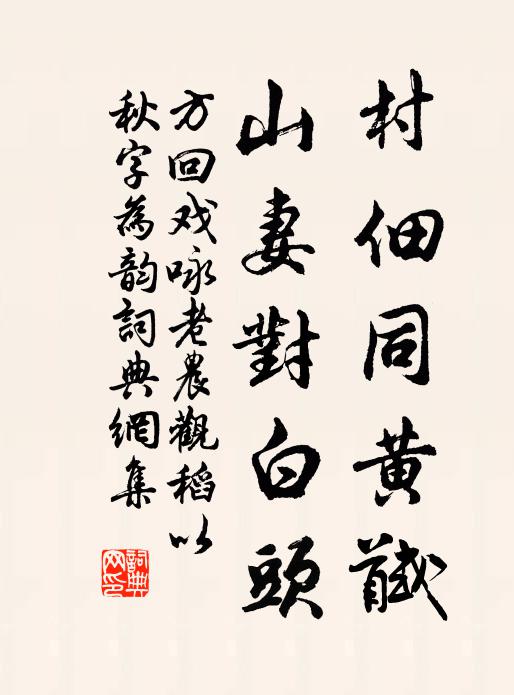 村佃同黄馘
山妻對白頭
方回戏咏老農觀稻以
秋字為韵詞典網集
詞典网印